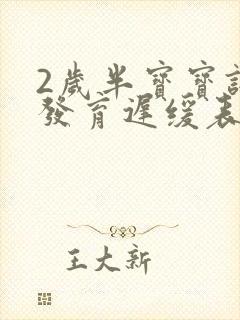 2歲半寶寶
發育遲緩表
王大新